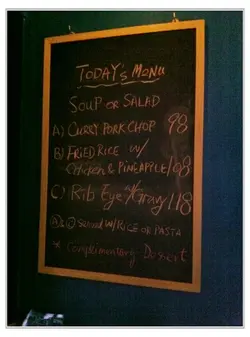 TODAY's MENU
SOUP OR SALAD
A) CURRY PORK CHOP 98
B) FRIED RICE W/
CHICKEN & PINEAPPLE/ 98
C) Rib Eye w/Gravy 118
A & C SERVED W/RICE OR PASTA
* Complimentary Dessert